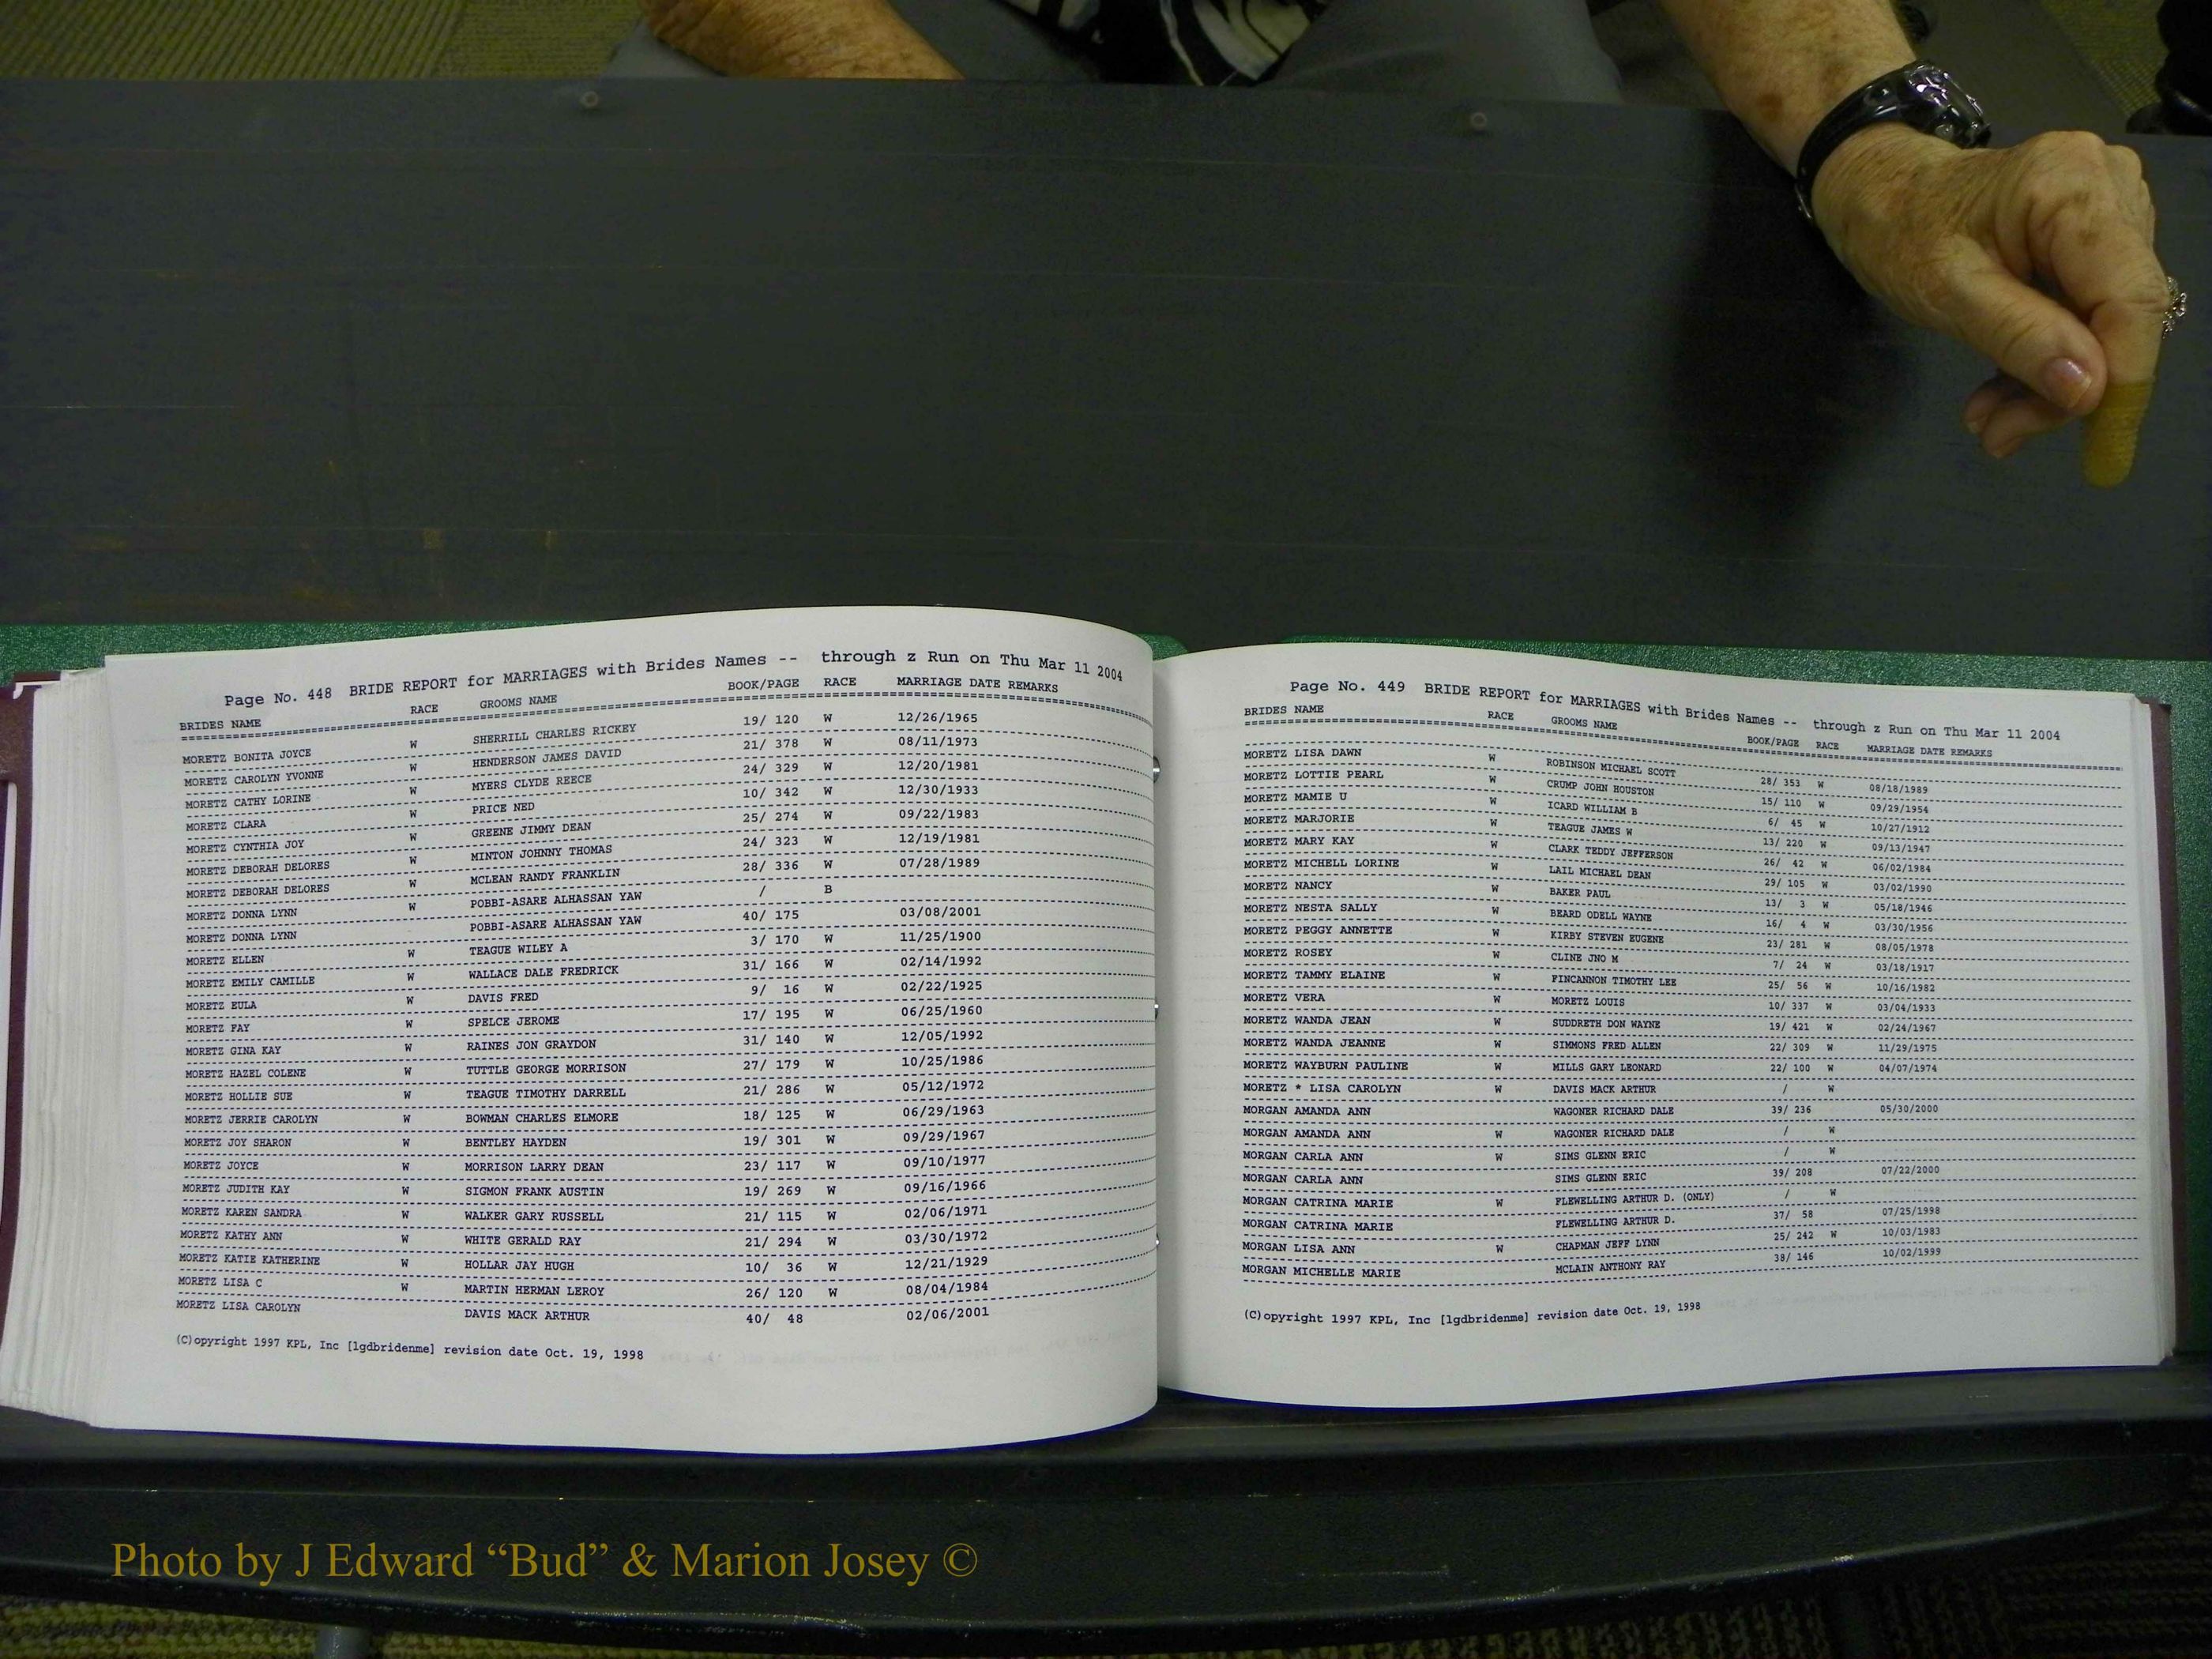 Page No. 448 BRIDE REPORT for MARRIAGES with Brides Names -- through z Run on Thu Mar 11 2004
BRIDES NAME RACE GROOMS NAME BOOK/PAGE RACE MARRIAGE DATE REMARKS
MORETZ BONITA JOYCE W SHERRILL CHARLES RICKEY 19/ 120 W 12/26/1965
MORETZ CAROLYN YVONNE W HENDERSON JAMES DAVID 21/ 378 W 08/11/1973
MORETZ CATHY LORINE W MYERS CLYDE REECE 24/ 329 W 12/20/1981
MORETZ CLARA W PRICE NED 10/ 342 W 12/30/1933
MORETZ CYNTHIA JOY W GREENE JIMMY DEAN 25/ 274 W 09/22/1983
MORETZ DEBORAH DELORES W MINTON JOHNNY THOMAS 24/ 323 W 12/19/1981
MORETZ DEBORAH DELORES W MCLEAN RANDY FRANKLIN 28/ 336 W 07/28/1989
MORETZ DONNA LYNN W POBBI-ASARE ALHASSAN YAW / B
MORETZ DONNA LYNN POBBI-ASARE ALHASSAN YAW 40/ 175 03/08/2001
MORETZ ELLEN W TEAGUE WILEY A 3/ 170 W 11/25/1900
MORETZ EMILY CAMILLE W WALLACE DALE FREDRICK 31/ 166 W 02/14/1992
MORETZ EULA W DAVIS FRED 9/ 16 W 02/22/1925
MORETZ FAY W SPELCE JEROME 17/ 195 W 06/25/1960
MORETZ GINA KAY W RAINES JON GRAYDON 31/ 140 W 12/05/1992
MORETZ HAZEL COLENE W TUTTLE GEORGE MORRISON 27/ 179 W 10/25/1986
MORETZ HOLLIE SUE W TEAGUE TIMOTHY DARRELL 21/ 286 W 05/12/1972
MORETZ JERRIE CAROLYN W BOWMAN CHARLES ELMORE 18/ 125 W 06/29/1963
MORETZ JOY SHARON W BENTLEY HAYDEN 19/ 301 W 09/29/1967
MORETZ JOYCE W MORRISON LARRY DEAN 23/ 117 W 09/10/1977
MORETZ JUDITH KAY W SIGMON FRANK AUSTIN 19/ 269 W 09/16/1966
MORETZ KAREN SANDRA W WALKER GARY RUSSELL 21/ 115 W 02/06/1971
MORETZ KATHY ANN W WHITE GERALD RAY 21/ 294 W 03/30/1972
MORETZ KATIE KATHERINE W HOLLAR JAY HUGH 10/ 36 W 12/21/1929
MORETZ LISA C W MARTIN HERMAN LEROY 26/ 120 W 08/04/1984
MORETZ LISA CAROLYN DAVIS MACK ARTHUR 40/ 48 02/06/2001
(C)opyright 1997 KPL, Inc [lgdbridenme] revision date Oct. 19, 1998
Page No. 449 BRIDE REPORT for MARRIAGES with Brides Names -- through z Run on Thu Mar 11 2004
BRIDES NAME RACE GROOMS NAME BOOK/PAGE RACE MARRIAGE DATE REMARKS
MORETZ LISA DAWN W ROBINSON MICHAEL SCOTT 28/ 353 W 08/18/1989
MORETZ LOTTIE PEARL W CRUMP JOHN HOUSTON 15/ 110 W 09/29/1954
MORETZ MAMIE U W ICARD WILLIAM B 6/ 45 W 10/27/1912
MORETZ MARJORIE W TEAGUE JAMES W 13/ 220 W 09/13/1947
MORETZ MARY KAY W CLARK TEDDY JEFFERSON 26/ 42 W 06/02/1984
MORETZ MICHELL LORINE W LAIL MICHAEL DEAN 29/ 105 W 03/02/1990
MORETZ NANCY W BAKER PAUL 13/ 3 W 05/18/1946
MORETZ NESTA SALLY W BEARD ODELL WAYNE 16/ 4 W 03/30/1956
MORETZ PEGGY ANNETTE W KIRBY STEVEN EUGENE 23/ 281 W 08/05/1978
MORETZ ROSEY W CLINE JNO M 7/ 24 W 03/18/1917
MORETZ TAMMY ELAINE W PINCANNON TIMOTHY LEE 25/ 56 W 10/16/1982
MORETZ VERA W MORETZ LOUIS 10/ 337 W 03/04/1933
MORETZ WANDA JEAN W SUDDRETH DON WAYNE 19/ 421 W 02/24/1967
MORETZ WANDA JEANNE W SIMMONS FRED ALLEN 22/ 309 W 11/29/1975
MORETZ WAYBURN PAULINE W MILLS GARY LEONARD 22/ 100 W 04/07/1974
MORETZ * LISA CAROLYN W DAVIS MACK ARTHUR / W
MORGAN AMANDA ANN WAGONER RICHARD DALE 39/ 236 05/30/2000
MORGAN AMANDA ANN W WAGONER RICHARD DALE / W
MORGAN CARLA ANN W SIMS GLENN ERIC / W
MORGAN CARLA ANN SIMS GLENN ERIC 39/ 208 07/22/2000
MORGAN CATRINA MARIE W FLEWELLING ARTHUR D. (ONLY) / W
MORGAN CATRINA MARIE FLEWELLING ARTHUR D. 37/ 58 07/25/1998
MORGAN LISA ANN W CHAPMAN JEFF LYNN 25/ 242 W 10/03/1983
MORGAN MICHELLE MARIE MCLAIN ANTHONY RAY 38/ 146 10/02/1999
(C)opyright 1997 KPL, Inc [lgdbridenme] revision date Oct. 19, 1998
Photo by J Edward “Bud” & Marion Josey ©